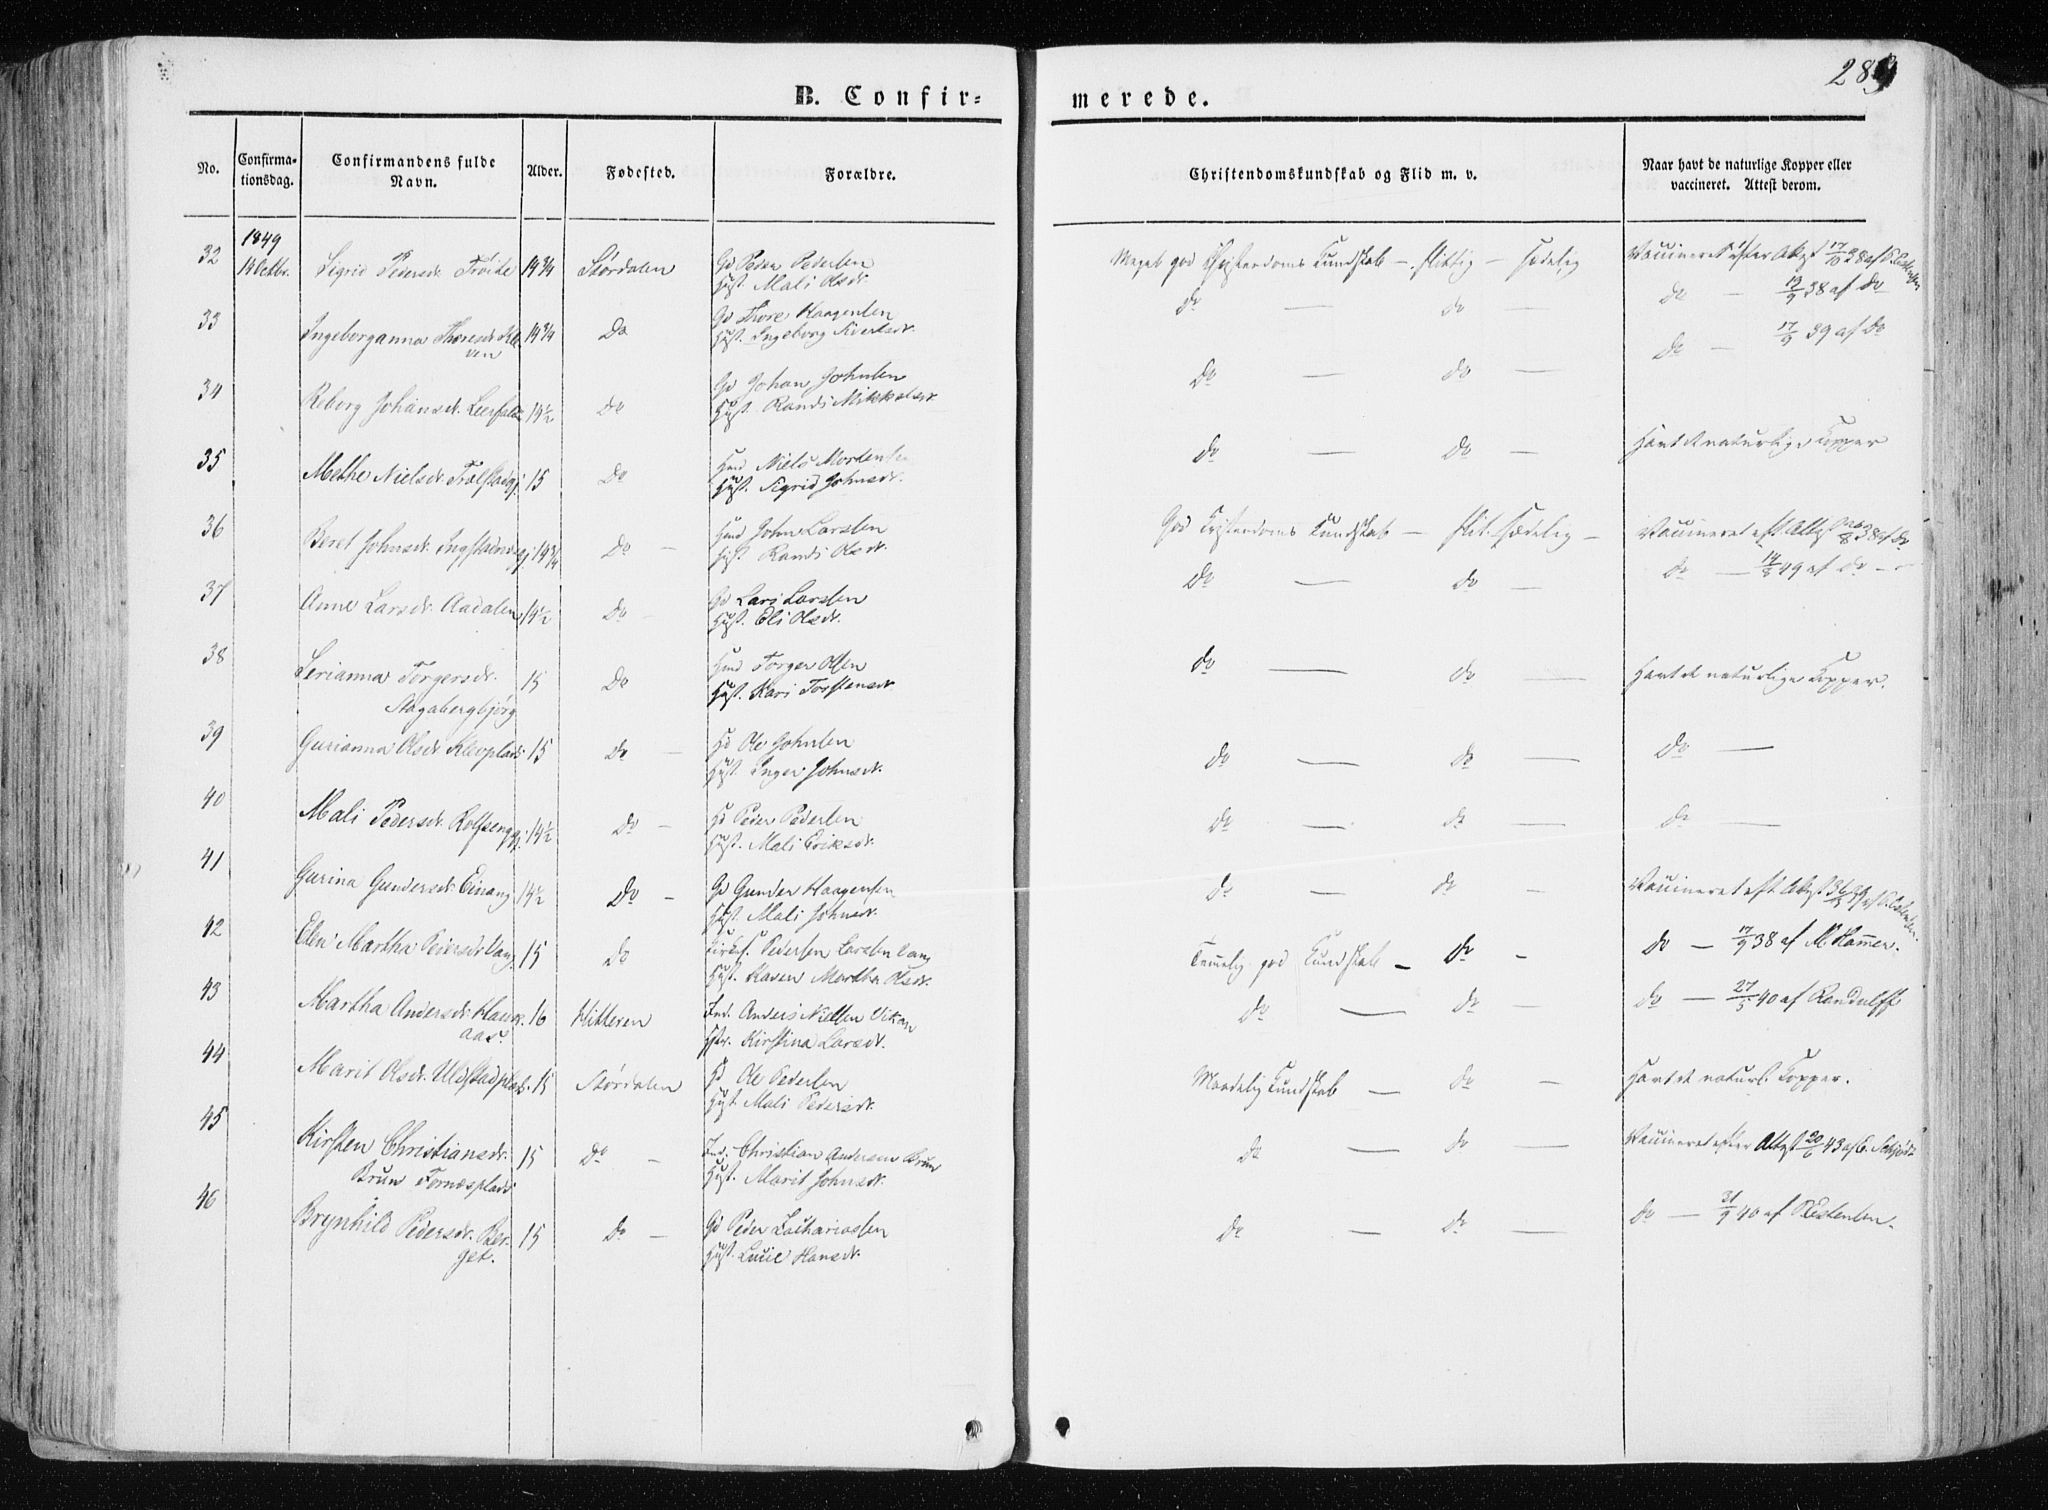 B. Confir=
merede.
No.
Confirma-
tionsdag.
Confirmandens fulde
Navn.
Alder.
Fødested.
Forældre.
Christendomskundskab og Flid m. v.
Naar havt de naturlige Kopper eller
vaccineret. Attest derom.
1849
32 14 Octbr. Sigrid Pedersdr. Trøite 14 3/4 Størdalen Gd Peder Pedersen
Hust. Mali Olsdr.
Meget god Christendoms Kundskab — flittig — sædelig
Vaccineret efter Attest 17/10 38 af
33 Ingeborganna Thoresdr. Kle-
ven 14 3/4 Do Gd Thore Haagensen
Hust. Ingeborg Sivertsdr.
do — do —
do — 19/9 38 af do
34 Reborg Johansdr. Leerfald 14 1/2 Do Gd Johan Johnsen
Hust. Randi Mikkelsdr.
do — do —
do — 17/9 39 af do
35 Methe Nielsdr. 15 Do Hmd Niels Mortensen
Hust. Sigrid Johnsdr.
do — do —
Havt de naturlige Kopper
36 Beret Johnsdr. 14 3/4 Do — Hmd John Larsen
Hust. Randi Olsdr.
God Kristendoms Kundskab — flit. Sædelig —
Vaccineret eft. Attest 38 af do
37 Anne Larsdr. Aadalen 14 1/2 Do — Gd Lars Larsen
Hust. Eli Olsdr.
do — do —
do — 49 af do —
38 Serianna Torgersdr.
Stagabergbjørg 15 Do Hmd Torger Olsen
Hust. Kari Torstensdr.
do — do —
Havt de naturlige Kopper.
39 Gurianna Olsdr. Klevplads 15 Do — Hd Ole Johnsen
Hust. Inger Johnsdr.
do — do —
do —
40 Mali Pedersdr. 14 1/2 Do — Hd Peder Pedersen
Hust. Mali Eriksdr.
do — do —
do —
41 Gurina Gundersdr. Einang 14 1/2 Do — Gd Gunder Haagensen
Hust. Mali Johnsdr.
do — do —
Vaccineret eft. Attest
42 Elen Martha Pedersdr. Vang 15 Do Pedersen Larsen Vang
Hust. Karen Martha Olsdr.
Temelig god Kundskab — do —
do — 17/9 38 af M Hamer.
43 Martha Andersdr.
aas. 16 Hitteren Ind. Anders Nielsen Vikan
Kirstina Larsdr.
do — do —
do — 27/5 40 af Randulff
44 Marit Olsdr. Uldstadplads 15 Størdalen Hd Ole Pedersen
Hust. Mali Pedersdr.
Maadelig Kundskab — do —
Havt de naturl. Kopper.
45 Kirsten Christiansdr.
Brun Fornæsplads 15 Do — Ind. Christian Andersen Brun
Hust. Marit Johnsdr.
do — do —
Vaccineret efter Attest 43 af
46 Brynhild Pedersdr. Ber-
get. 15 Do — Gd Peder Zachariassen
Hust. Lucie Hansdr.
do — do —
do — 40 af